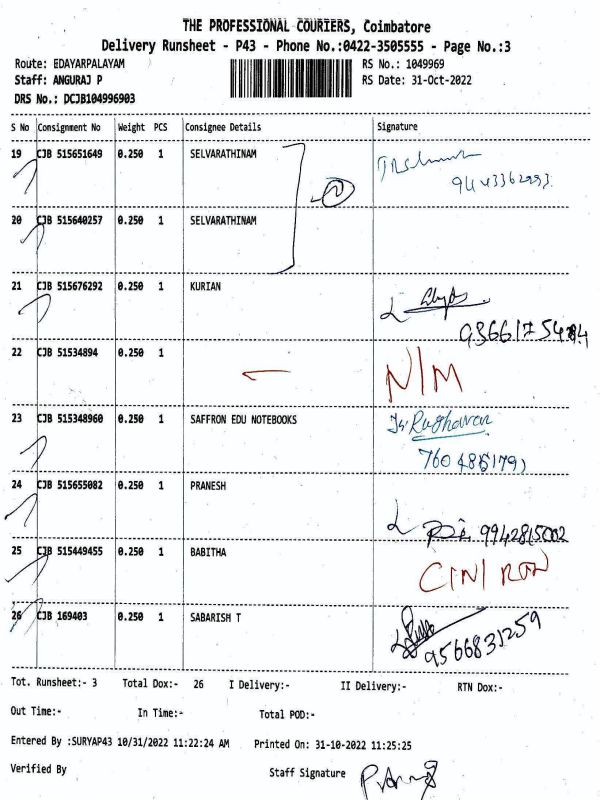 THE PROFESSIONAL COURIERS, Coimbatore
Delivery Runsheet - P43 - Phone No.:0422-3505555 - Page No.:3
Route: EDAYARPALAYAM RS No.: 1049969
Staff: ANGURAJ P RS Date: 31-Oct-2022
DRS No.: DCJB104996903
S No Consignment No Weight PCS Consignee Details Signature
19 CJB 515651649 0.250 1 SELVARATHINAM
20 CJB 515640257 0.250 1 SELVARATHINAM
21 CJB 515676292 0.250 1 KURIAN
22 CJB 51534894 0.250 1 N/M
23 CJB 515348960 0.250 1 SAFFRON EDU NOTEBOOKS Raghavan
24 CJB 515655082 0.250 1 PRANESH
9942815002
25 CJB 515449455 0.250 1 BABITHA
26 CJB 169403 0.250 1 SABARISH T
9566831259
Tot. Runsheet:- 3 Total Dox:- 26 I Delivery:- II Delivery:- RTN Dox:-
Out Time:- In Time:- Total POD:-
Entered By :SURYAP43 10/31/2022 11:22:24 AM Printed On: 31-10-2022 11:25:25
Verified By Staff Signature